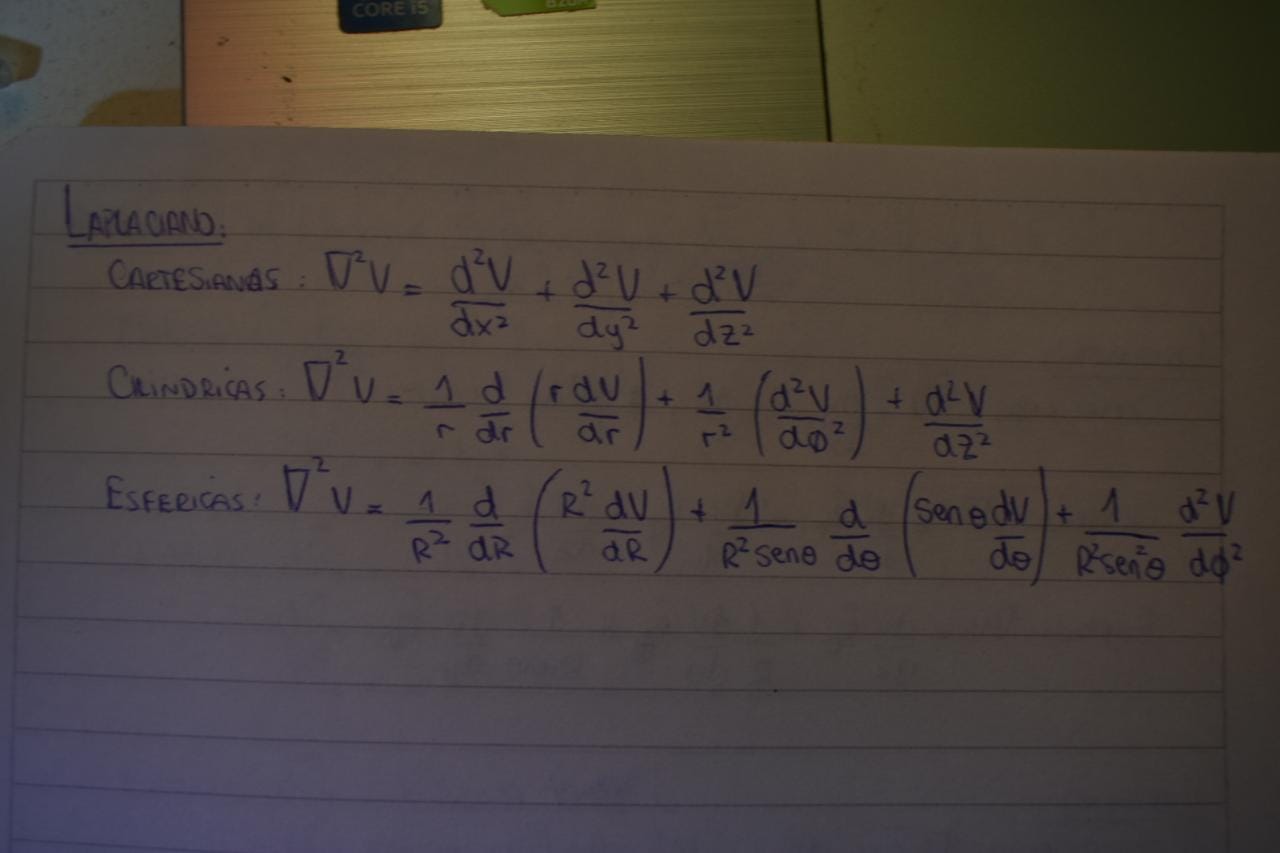 CORE i5
LAPLACIANO:
CARTESIANAS: ∇²V = d²V/dx² + d²V/dy² + d²V/dz²
CILINDRICAS: ∇²V = 1/r d/dr (r dV/dr) + 1/r² (d²V/dϕ²) + d²V/dz²
ESFERICAS: ∇²V = 1/R² d/dR (R² dV/dR) + 1/R²senθ d/dθ (senθ dV/dθ) + 1/R²sen²θ d²V/dϕ²